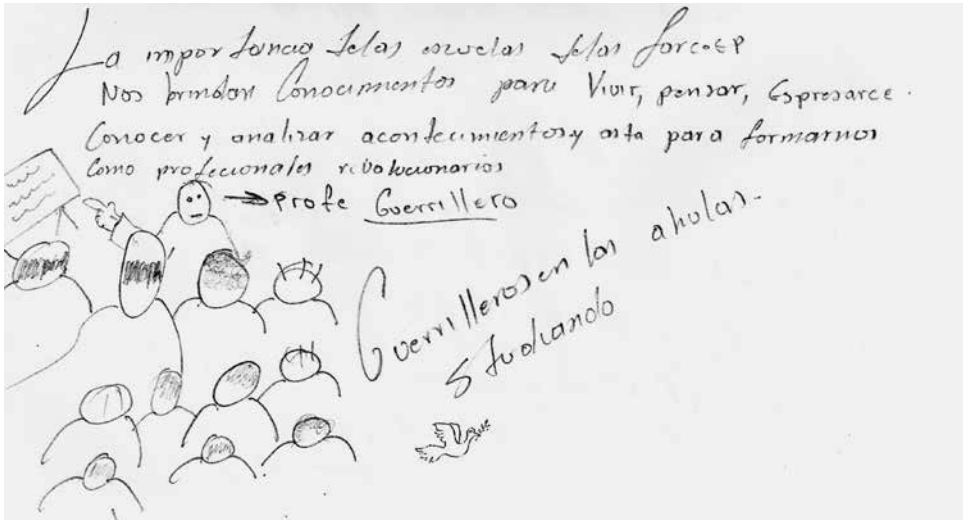 La importancia delas escuelas delas farc-EP
Nos brindan Conocimientos para Vivir, pensar, Espresarce.
Conocer y analizar acontecimientos y asta para formarnos
Como profecionales revolucionarios
→ Profe Guerrillero
Guerrilleros en las ahulas.
studiando